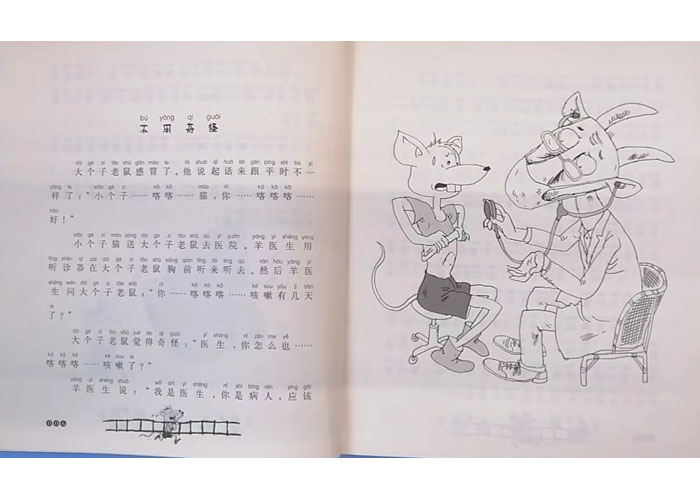 bú yòng qí guài
不用奇怪
dà gè zi lǎo shǔ gǎn mào le tā shuō qǐ huà lái gēn píng shí bù yí
大个子老鼠感冒了。他说起话来跟平时不一
yàng le xiǎo gè zi kā kā māo nǐ kā kā kā
样了:“小个子……喀喀……猫,你……喀喀喀……
hǎo
好!”
xiǎo gè zi māo sòng dà gè zi lǎo shǔ qù yī yuàn yáng yī shēng yòng
小个子猫送大个子老鼠去医院。羊医生用
tīng zhěn qì zài dà gè zi lǎo shǔ xiōng qián tīng lái tīng qù rán hòu yáng yī
听诊器在大个子老鼠胸前听来听去。然后羊医
shēng wèn dà gè zi lǎo shǔ nǐ kā kā kā ké sou yǒu jǐ tiān
生问大个子老鼠:“你……喀喀喀……咳嗽有几天
le
了?”
dà gè zi lǎo shǔ jué de qí guài yī shēng nǐ zěn me yě
大个子老鼠觉得奇怪:“医生,你怎么也……
kā kā kā ké sou le
喀喀喀……咳嗽了?”
yáng yī shēng shuō wǒ shì yī shēng nǐ shì bìng rén yīng gāi
羊医生说:“我是医生,你是病人,应该
006